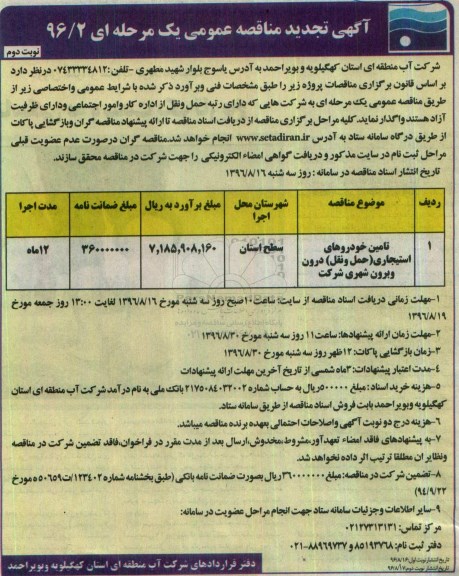 آگهی تجدید مناقصه عمومی یک مرحله ای ۹۶/۲
نوبت دوم
شرکت آب منطقه ای استان کهگیلویه و بویراحمد به آدرس یاسوج بلوار شهید مطهری - تلفن: ۰۷۴۳۳۳۳۴۸۱۲ درنظر دارد
بر اساس قانون برگزاری مناقصات پروژه زیر را طبق مشخصات فنی وبرآورد ذکر شده با شرایط عمومی واختصاصی زیر از
طریق مناقصه عمومی یک مرحله ای به شرکت هایی که دارای رتبه حمل ونقل از اداره کار وامور اجتماعی ودارای ظرفیت
آزاد هستند واگذار نماید. کلیه مراحل برگزاری مناقصه از دریافت اسناد مناقصه تا ارائه پیشنهاد مناقصه گران وبازگشایی پاکات
از طریق درگاه سامانه ستاد به آدرس www.setadiran.ir انجام خواهد شد. مناقصه گران درصورت عدم عضویت قبلی
مراحل ثبت نام در سایت مذکور و دریافت گواهی امضاء الکترونیکی را جهت شرکت در مناقصه محقق سازند.
تاریخ انتشار اسناد مناقصه در سامانه : روز سه شنبه ۱۳۹۶/۸/۱۶
ردیف موضوع مناقصه شهرستان محل اجرا مبلغ برآورد به ریال مبلغ ضمانت نامه مدت اجرا
۱ تامین خودروهای استیجاری(حمل ونقل) درون وبرون شهری شرکت سطح استان ۷,۱۸۵,۹۰۸,۱۶۰ ۳۶۰۰۰۰۰۰۰ ۱۲ماه
۱-مهلت زمانی دریافت اسناد مناقصه از سایت: ساعت ۱۰صبح روز سه شنبه مورخ ۱۳۹۶/۸/۱۶ لغایت ۱۳:۰۰ روز جمعه مورخ
۱۳۹۶/۸/۱۹
۲-مهلت زمان ارائه پیشنهادها: ساعت ۱۱ روز سه شنبه مورخ ۱۳۹۶/۸/۳۰
۳-زمان بازگشایی پاکات: ۱۲ظهر روز سه شنبه مورخ ۱۳۹۶/۸/۳۰
۴-مدت اعتبار پیشنهادات: ۳ماه شمسی از تاریخ آخرین مهلت ارائه پیشنهادات
۵-هزینه خرید اسناد: مبلغ ۵۰۰۰۰۰ریال به حساب شماره ۲۱۷۵۰۸۴۰۳۲۰۰۲ بانک ملی به نام درآمد شرکت آب منطقه ای استان
کهگیلویه وبویراحمد بابت فروش اسناد مناقصه از طریق سامانه ستاد.
۶-هزینه درج دو نوبت آگهی واصلاحات احتمالی بعهده برنده مناقصه میباشد.
۷-به پیشنهادهای فاقد امضاء تعهدآور، مشروط، مخدوش، ارسال بعد از مدت مقرر در فراخوان، فاقد تضمین شرکت در مناقصه
ونظایر آن مطلقا ترتیب اثر داده نخواهد شد.
۸-تضمین شرکت در مناقصه: مبلغ ۳۶۰۰۰۰۰۰۰ ریال بصورت ضمانت نامه بانکی (طبق بخشنامه شماره ۱۲۳۴۰۲/ت۵۰۶۵۹ه مورخ
۹۴/۹/۲۲)
۹-سایر اطلاعات وجزئیات سامانه ستاد جهت انجام مراحل عضویت در سامانه:
مرکز تماس: ۰۲۱۲۷۳۱۳۱۳۱
دفتر ثبت نام: ۸۵۱۹۳۷۶۸ و ۰۲۱-۸۸۹۶۹۷۳۷
تاریخ انتشار نوبت اول: ۹۶/۸/۱۶
تاریخ انتشار نوبت دوم: ۹۶/۸/۱۷
دفتر قراردادهای شرکت آب منطقه ای استان کهگیلویه وبویراحمد